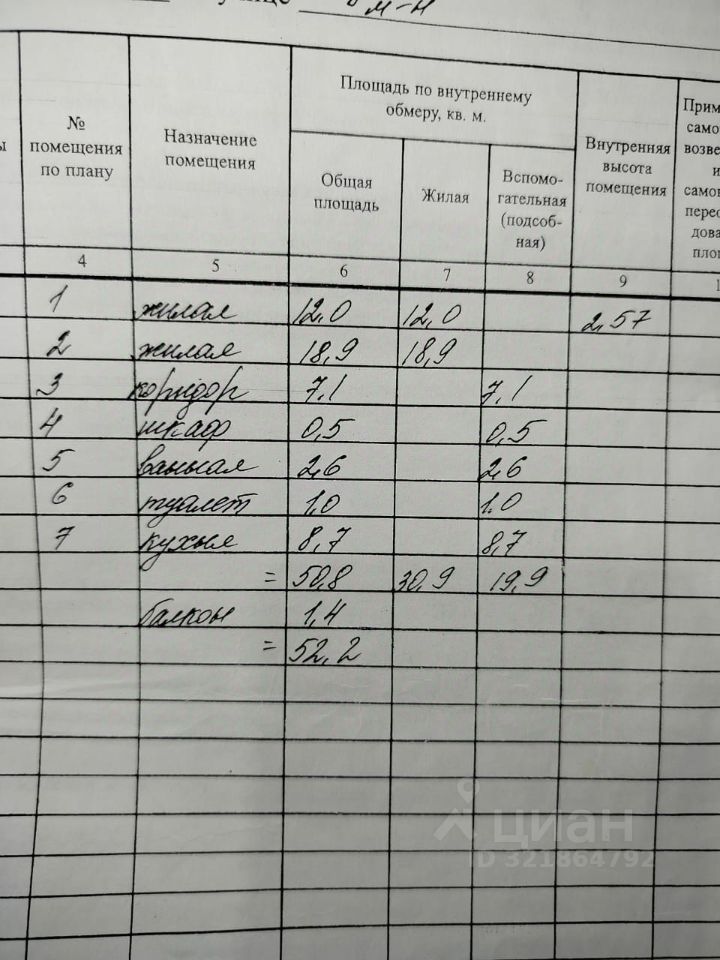 м-н
№ помещения по плану
Назначение помещения
Площадь по внутреннему обмеру, кв. м.
Общая площадь
Жилая
Вспомо-гательная (подсоб-ная)
Внутренняя высота помещения
4 5 6 7 8 9
1 жилая 12,0 12,0 2,57
2 жилая 18,9 18,9
3 коридор 7,1 7,1
4 шкаф 0,5 0,5
5 ванная 2,6 2,6
6 туалет 1.0 1.0
7 кухня 8,7 8,7
= 50,8 30,9 19,9
балкон 1,4
= 52,2
циан
ID 321864792